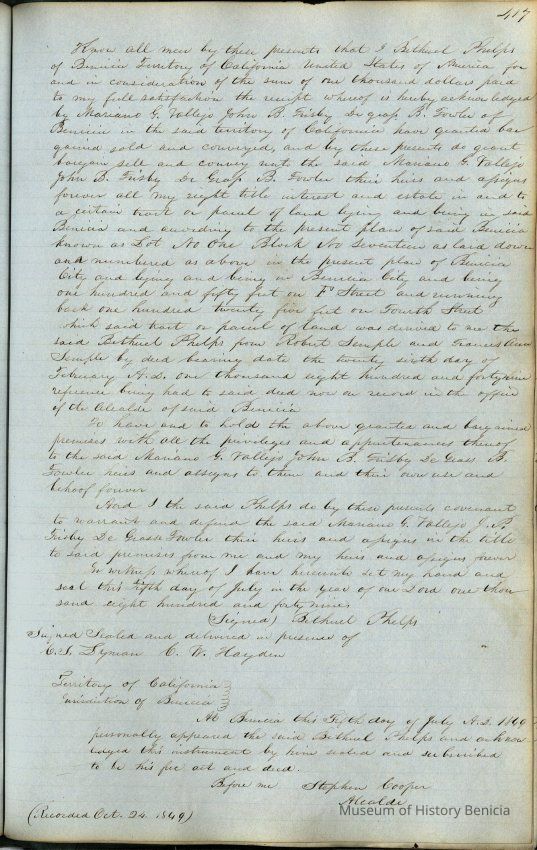 417
Know all men by these presents that I Bethuel Phelps
of Benicia Territory of California United States of America for
and in consideration of the sum of one thousand dollars paid
to my full satisfaction the receipt whereof is hereby acknowledged
by Mariano G. Vallejo John B. Frisby De Grass B. Fowler of
Benicia in the said territory of California have granted bar
gained sold and conveyed, and by these presents do grant
bargain sell and convey unto the said Mariano G. Vallejo
John B. Frisby De Grass B. Fowler their heirs and assigns
forever all my right title interest and estate in and to
a certain tract or parcel of land lying and being in said
Benicia and according to the present plan of said Benicia
known as Lot No One Block No Seventeen as laid down
and numbered as above in the present plan of Benicia
City and lying and being in Benicia City and being
one hundred and fifty feet on F Street and running
back one hundred twenty five feet on Fourth Street
which said tract or parcel of land was deeded to me the
said Bethuel Phelps from Robert Semple and Frances Ann
Semple by deed bearing date the twenty sixth day of
February A.D. one thousand eight hundred and forty nine
reference being had to said deed now on record in the office
of the Alcalde of said Benicia
To have and to hold the above granted and bargained
premises with all the privileges and appurtenances thereof
to the said Mariano G. Vallejo John B. Frisby De Grass B
Fowler heirs and assigns to them and their own use and
behoof forever
And I the said Phelps do by these presents covenant
to warrant and defend the said Mariano G. Vallejo J. B.
Frisby De Grass Fowler their heirs and assigns in the title
to said premises from me and my heirs and assigns forever
In witness whereof I have hereunto set my hand and
seal this Fifth day of July in the year of our Lord one thou
sand eight hundred and forty nine
(Signed) Bethuel Phelps
Signed Sealed and delivered in presence of
C. S. Lyman C. W. Hayden
Territory of California
Jurisdiction of Benicia
At Benicia this Fifth day of July A.D. 1849
personally appeared the said Bethuel Phelps and acknow
ledged this instrument by him sealed and subscribed
to be his free act and deed.
Before me Stephen Cooper
Alcalde
(Recorded Oct. 24. 1849)
Museum of History Benicia